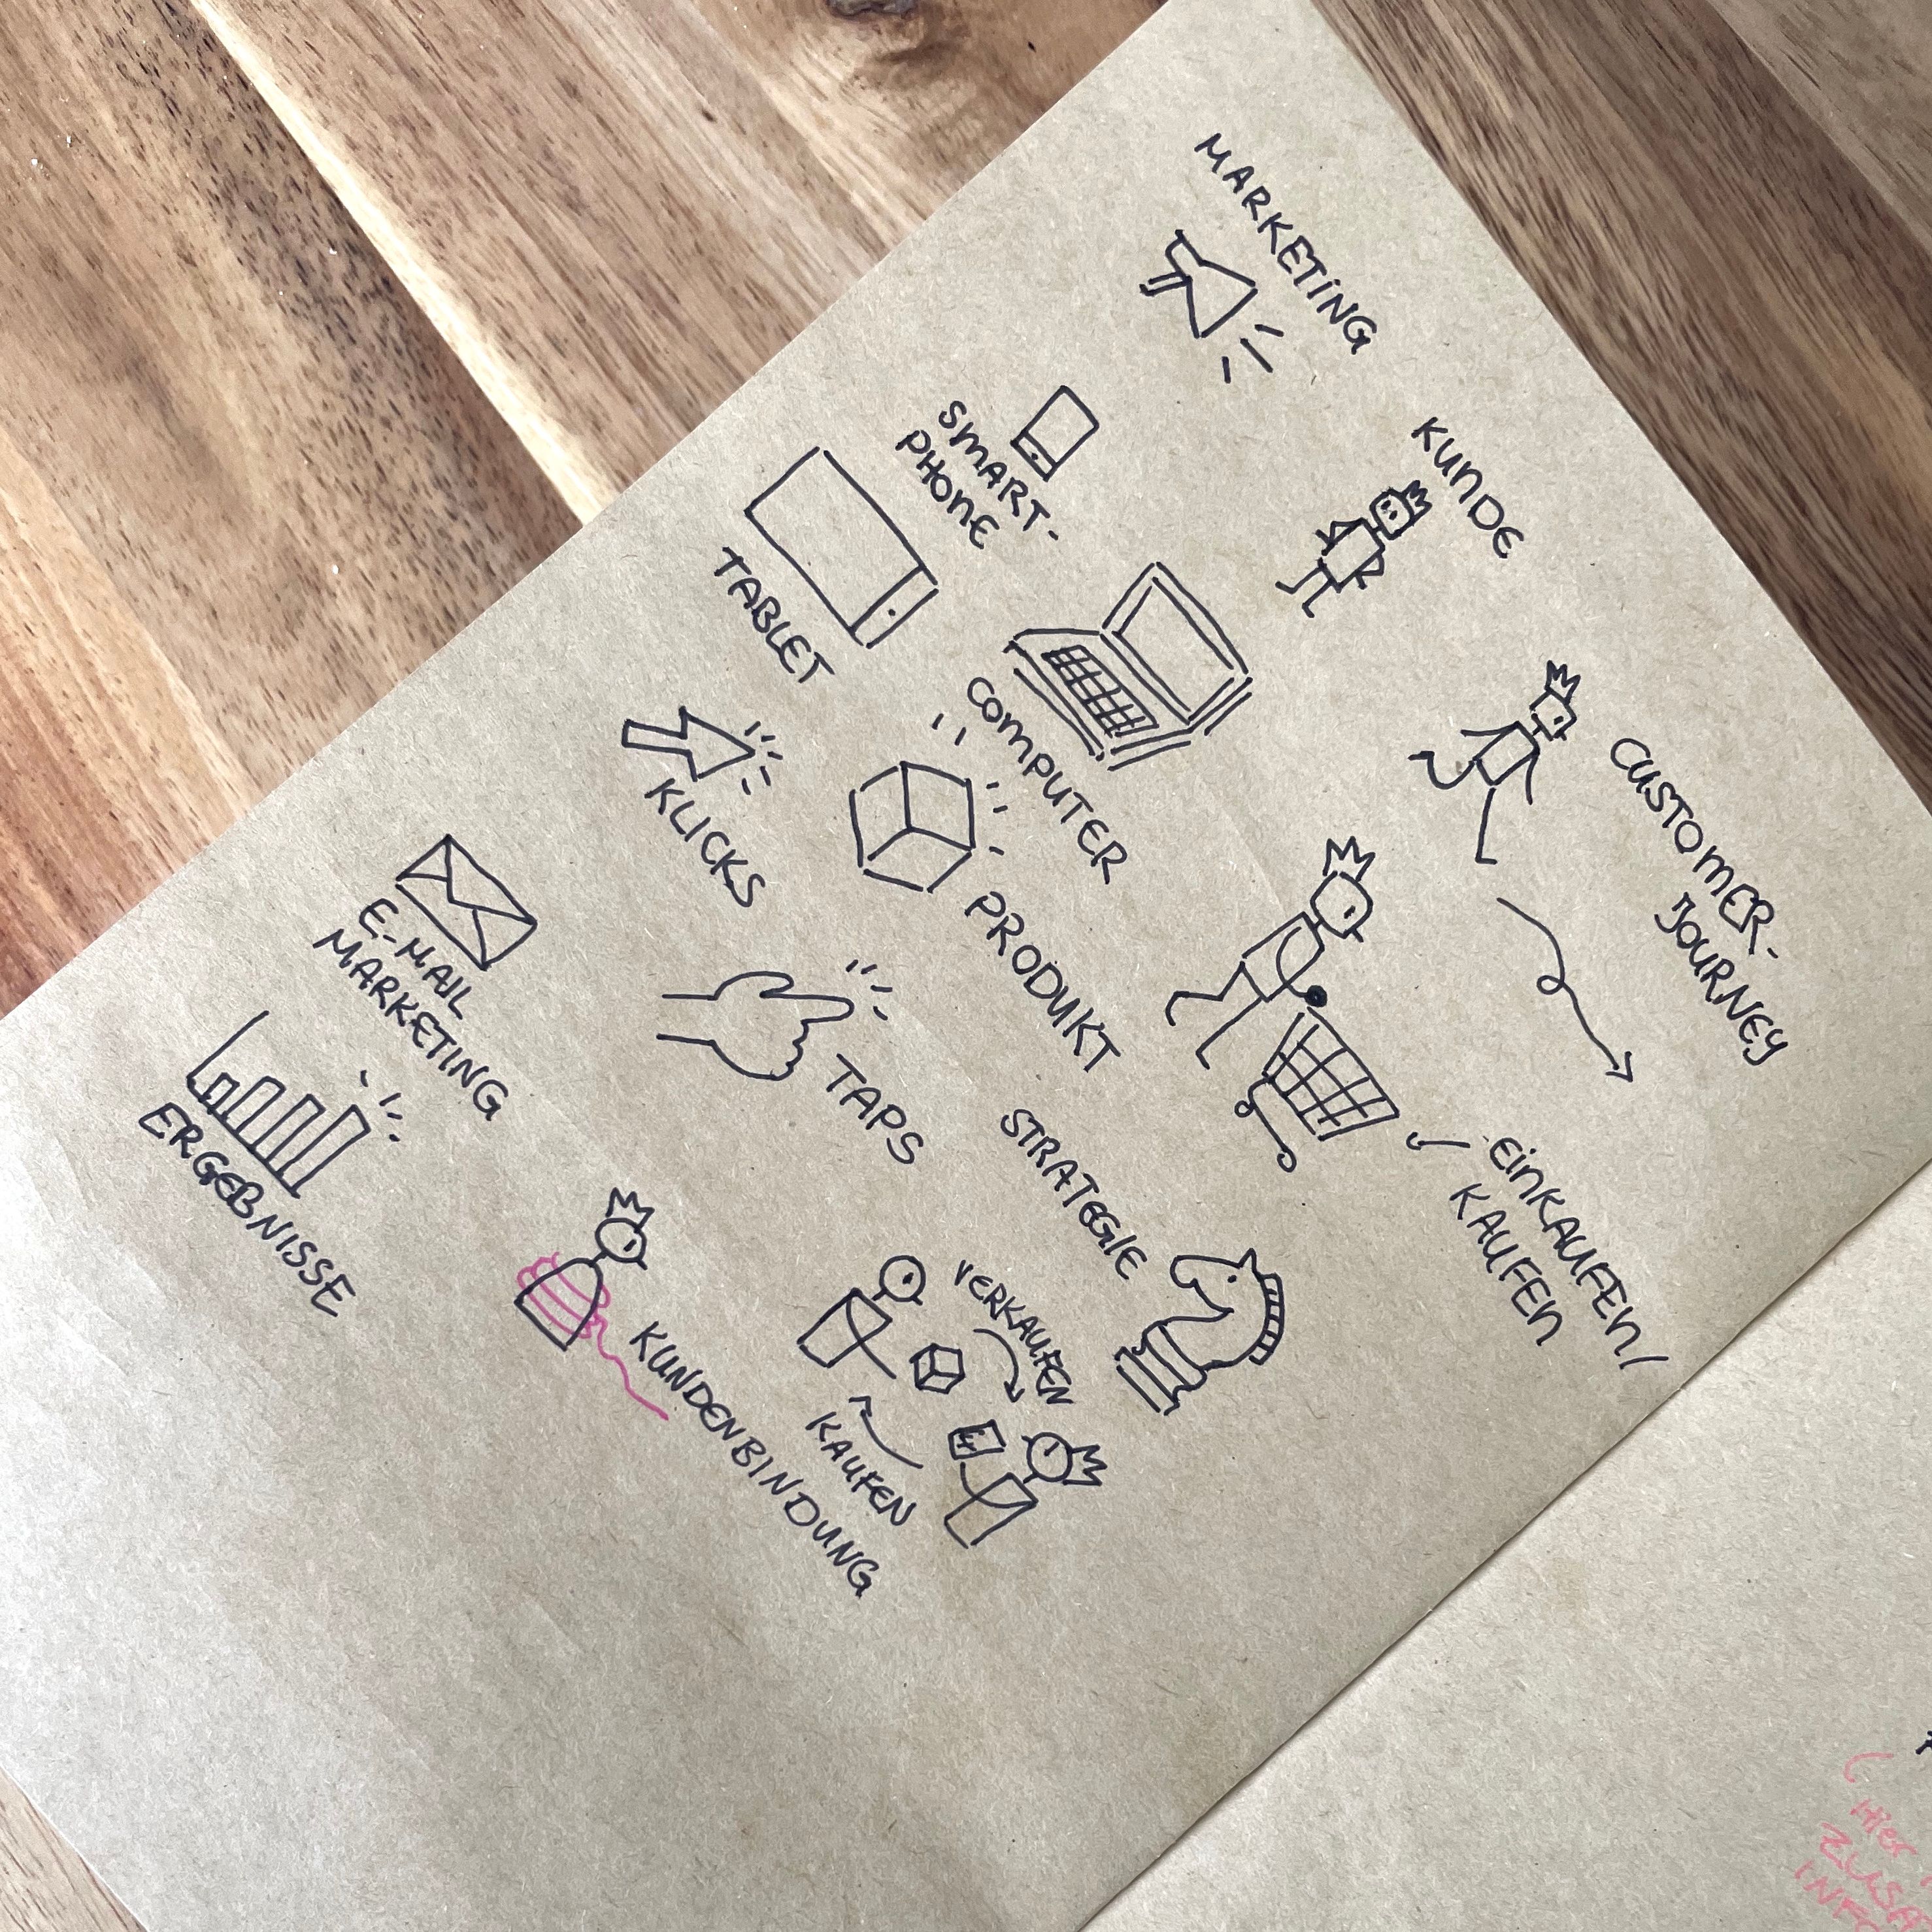 MARKETING
KUNDE
SMART-
PHONE
TABLET
COMPUTER
CUSTOMER-
JOURNEY
KLICKS
PRODUKT
EINKAUFEN/
KAUFEN
E-MAIL
MARKETING
TAPS
STRATEGIE
ERGEBNISSE
VERKAUFEN
KAUFEN
KUNDENBINDUNG
Hier